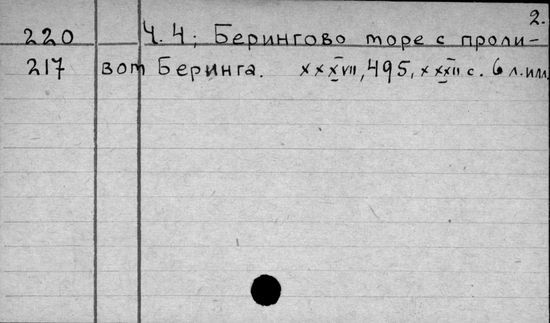 2.
220 Ч. 4; Берингово море с проли-
217 вом Беринга. XXXVII, 495, XXXII с. 6 л. илл.